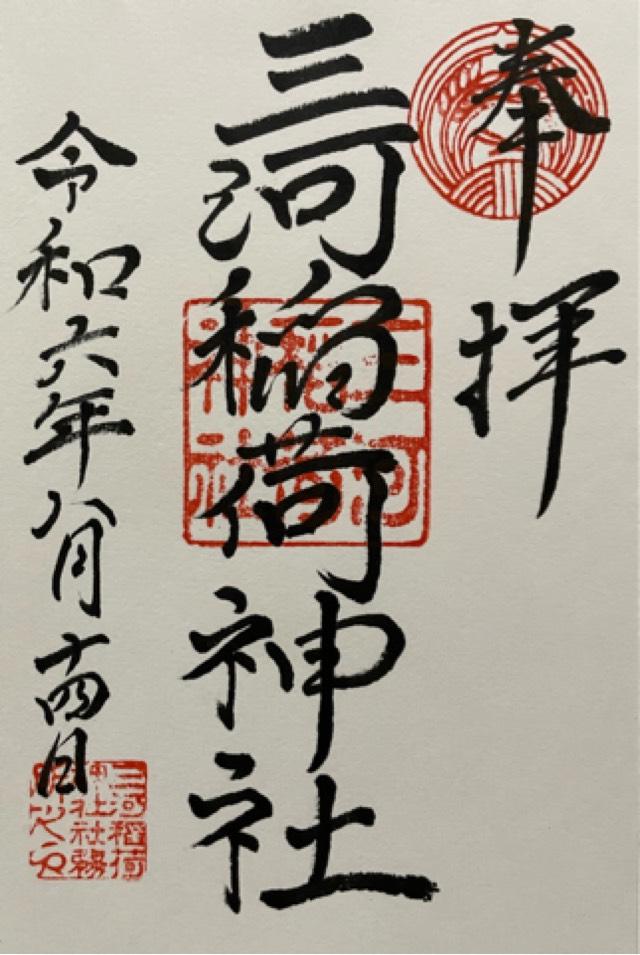 奉拝
三河稲荷神社
令和六年八月十四日
三河稲荷神社
三河稲荷
神社社務